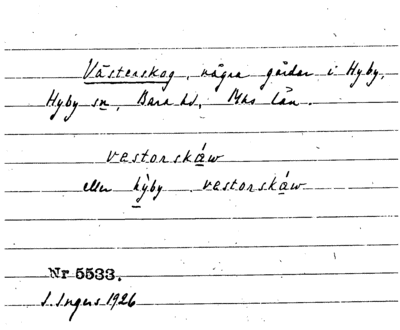 Västerskog, några gårdar i Hyby,
Hyby sn, Bara hd, Mhs län.
vestorskáw
eller hỳby vestorskáw
Nr 5533.
I. Ingers 1926